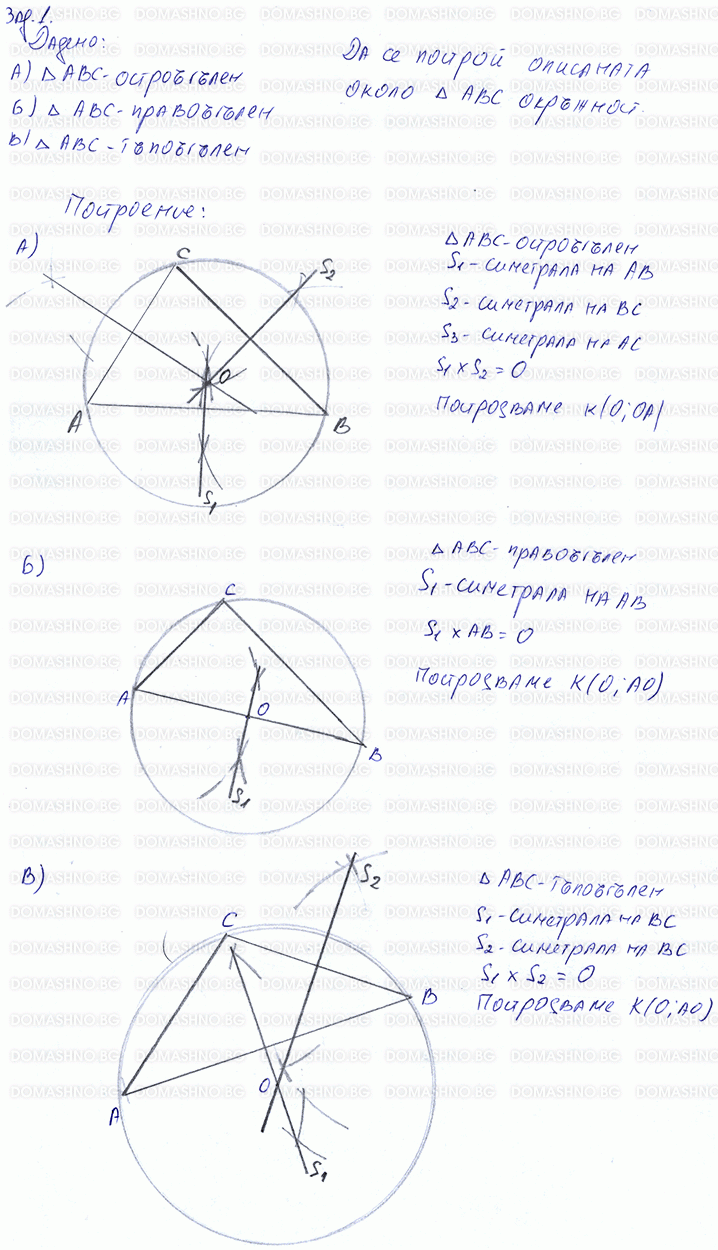 Зад. 1.
Дадено:
А) △ ABC - остроъгълен
Б) △ ABC - правоъгълен
В) △ ABC - тъпоъгълен
Да се построй описаната
около △ ABC окръжност.
Построение:
А)
C
S2
O
A
B
S1
△ ABC - остроъгълен
S1 - симетрала на AB
S2 - симетрала на BC
S3 - симетрала на AC
S1 x S2 = O
Построяваме k(O; OA)
Б)
C
A
O
B
S1
△ ABC - правоъгълен
S1 - симетрала на AB
S1 x AB = O
Построяваме k(O; AO)
В)
S2
C
B
O
A
S1
△ ABC - тъпоъгълен
S1 - симетрала на BC
S2 - симетрала на BC
S1 x S2 = O
Построяваме k(O; AO)
DOMASHNO.BG